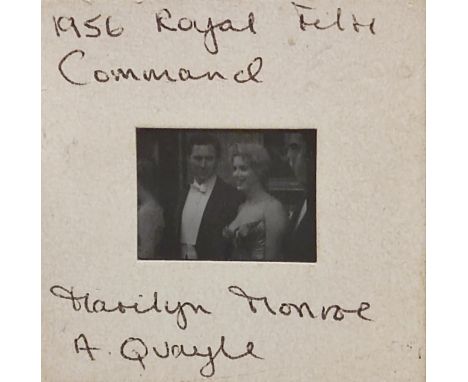 1956 Royal Film
Command
Marilyn Monroe
A. Quayle